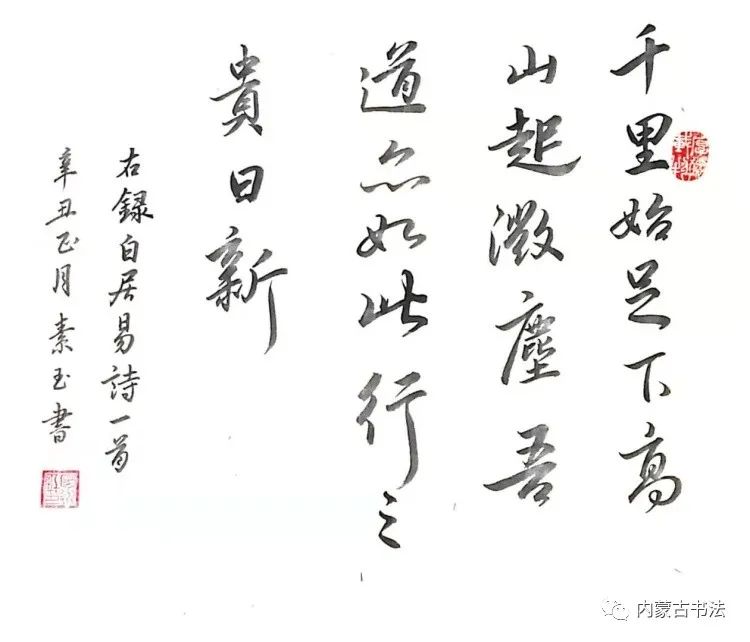 千里始足下高
山起微塵吾
道亦如此行之
貴日新
右録白居易詩一首
辛丑正月素玉書
厚德載物
内蒙古书法